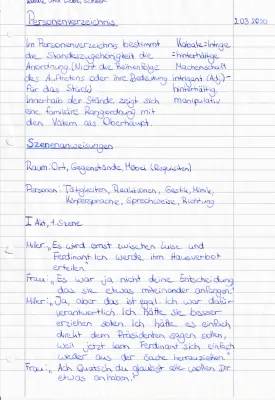 Personenverzeichnis 2.03.2020
Im Personenverzeichnis bestimmt Kabale=Intrige
die Standeszugehörigkeit die =hinterhältige
Anordnung (Nicht die Reihenfolge Machenschaft
des Auftretens oder ihre Bedeutung intrigant (Adj.)=
für das Stück) hinterhältig,
Innerhalb der Stände zeigt sich manipulativ
eine familiäre Rangordnung mit
den Vätern als Oberhaupt.
Szenenanweisungen
Raum: Ort, Gegenstände, Möbel (Requisiten)
Personen: Tätigkeiten, Reaktionen, Gestik, Mimik,
Körpersprache, Sprechweise, Richtung
I Akt, 1. Szene
Miller: „Es wird ernst zwischen Luise und
Ferdinant. Ich werde ihm Hausverbot
erteilen"
Frau: „Es war ja nicht deine Entscheidung
das sie etwas miteinander anfangen."
Miller: „Ja, aber das ist egal. Ich war dafür
verantwortlich. Ich hätte sie besser
erziehen sollen. Ich hätte es einfach
direkt dem Präsidenten sagen sollen,
weil jetzt kann Ferdinant sich einfach
wieder aus der Sache herausziehen."
Frau: „Ach Quatsch du glaubst sie wollen Dir
etwas anhaben."